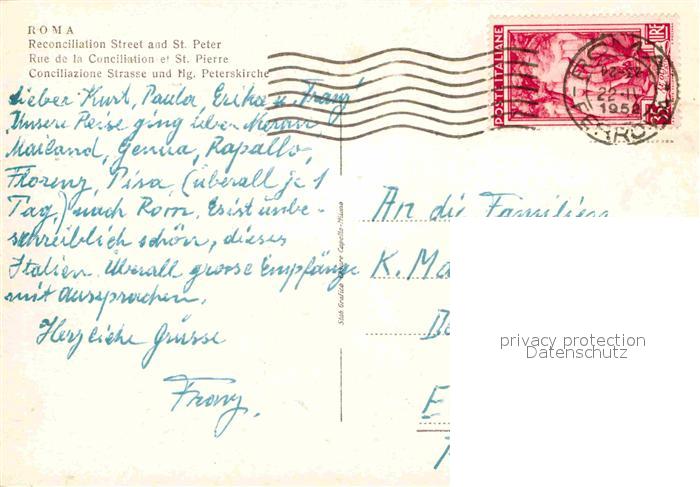 ROMA
Reconciliation Street and St. Peter
Rue de la Conciliation et St. Pierre
Conciliazione Strasse und Hg. Peterskirche
Lieber Kurt, Paula, Erika u. Franz
Unsere Reise ging über Meran
Mailand, Genua, Rapallo,
Florenz, Pisa, (überall je 1
Tag,) nach Rom. Es ist unbe-
schreiblich schön, dieses
Italien. Überall grosse Empfänge
mit Aussprachen.
Herzliche Grüsse
Franz.
POSTE ITALIANE
LIRE
ROMA
22-IV
195
FERROVIA
An die Familien
K. Ma
E
privacy protection
Datenschutz